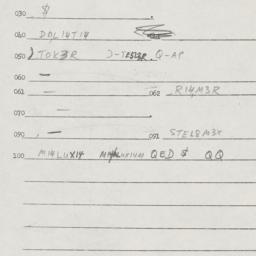 030 $
040 DOL14T14
050 ) TOK3R Q-AP
060 —
061 — 062 R14M3R
070 —
090 , — 091 STEL8M3X
100 M14LUX14 QED $ QQ